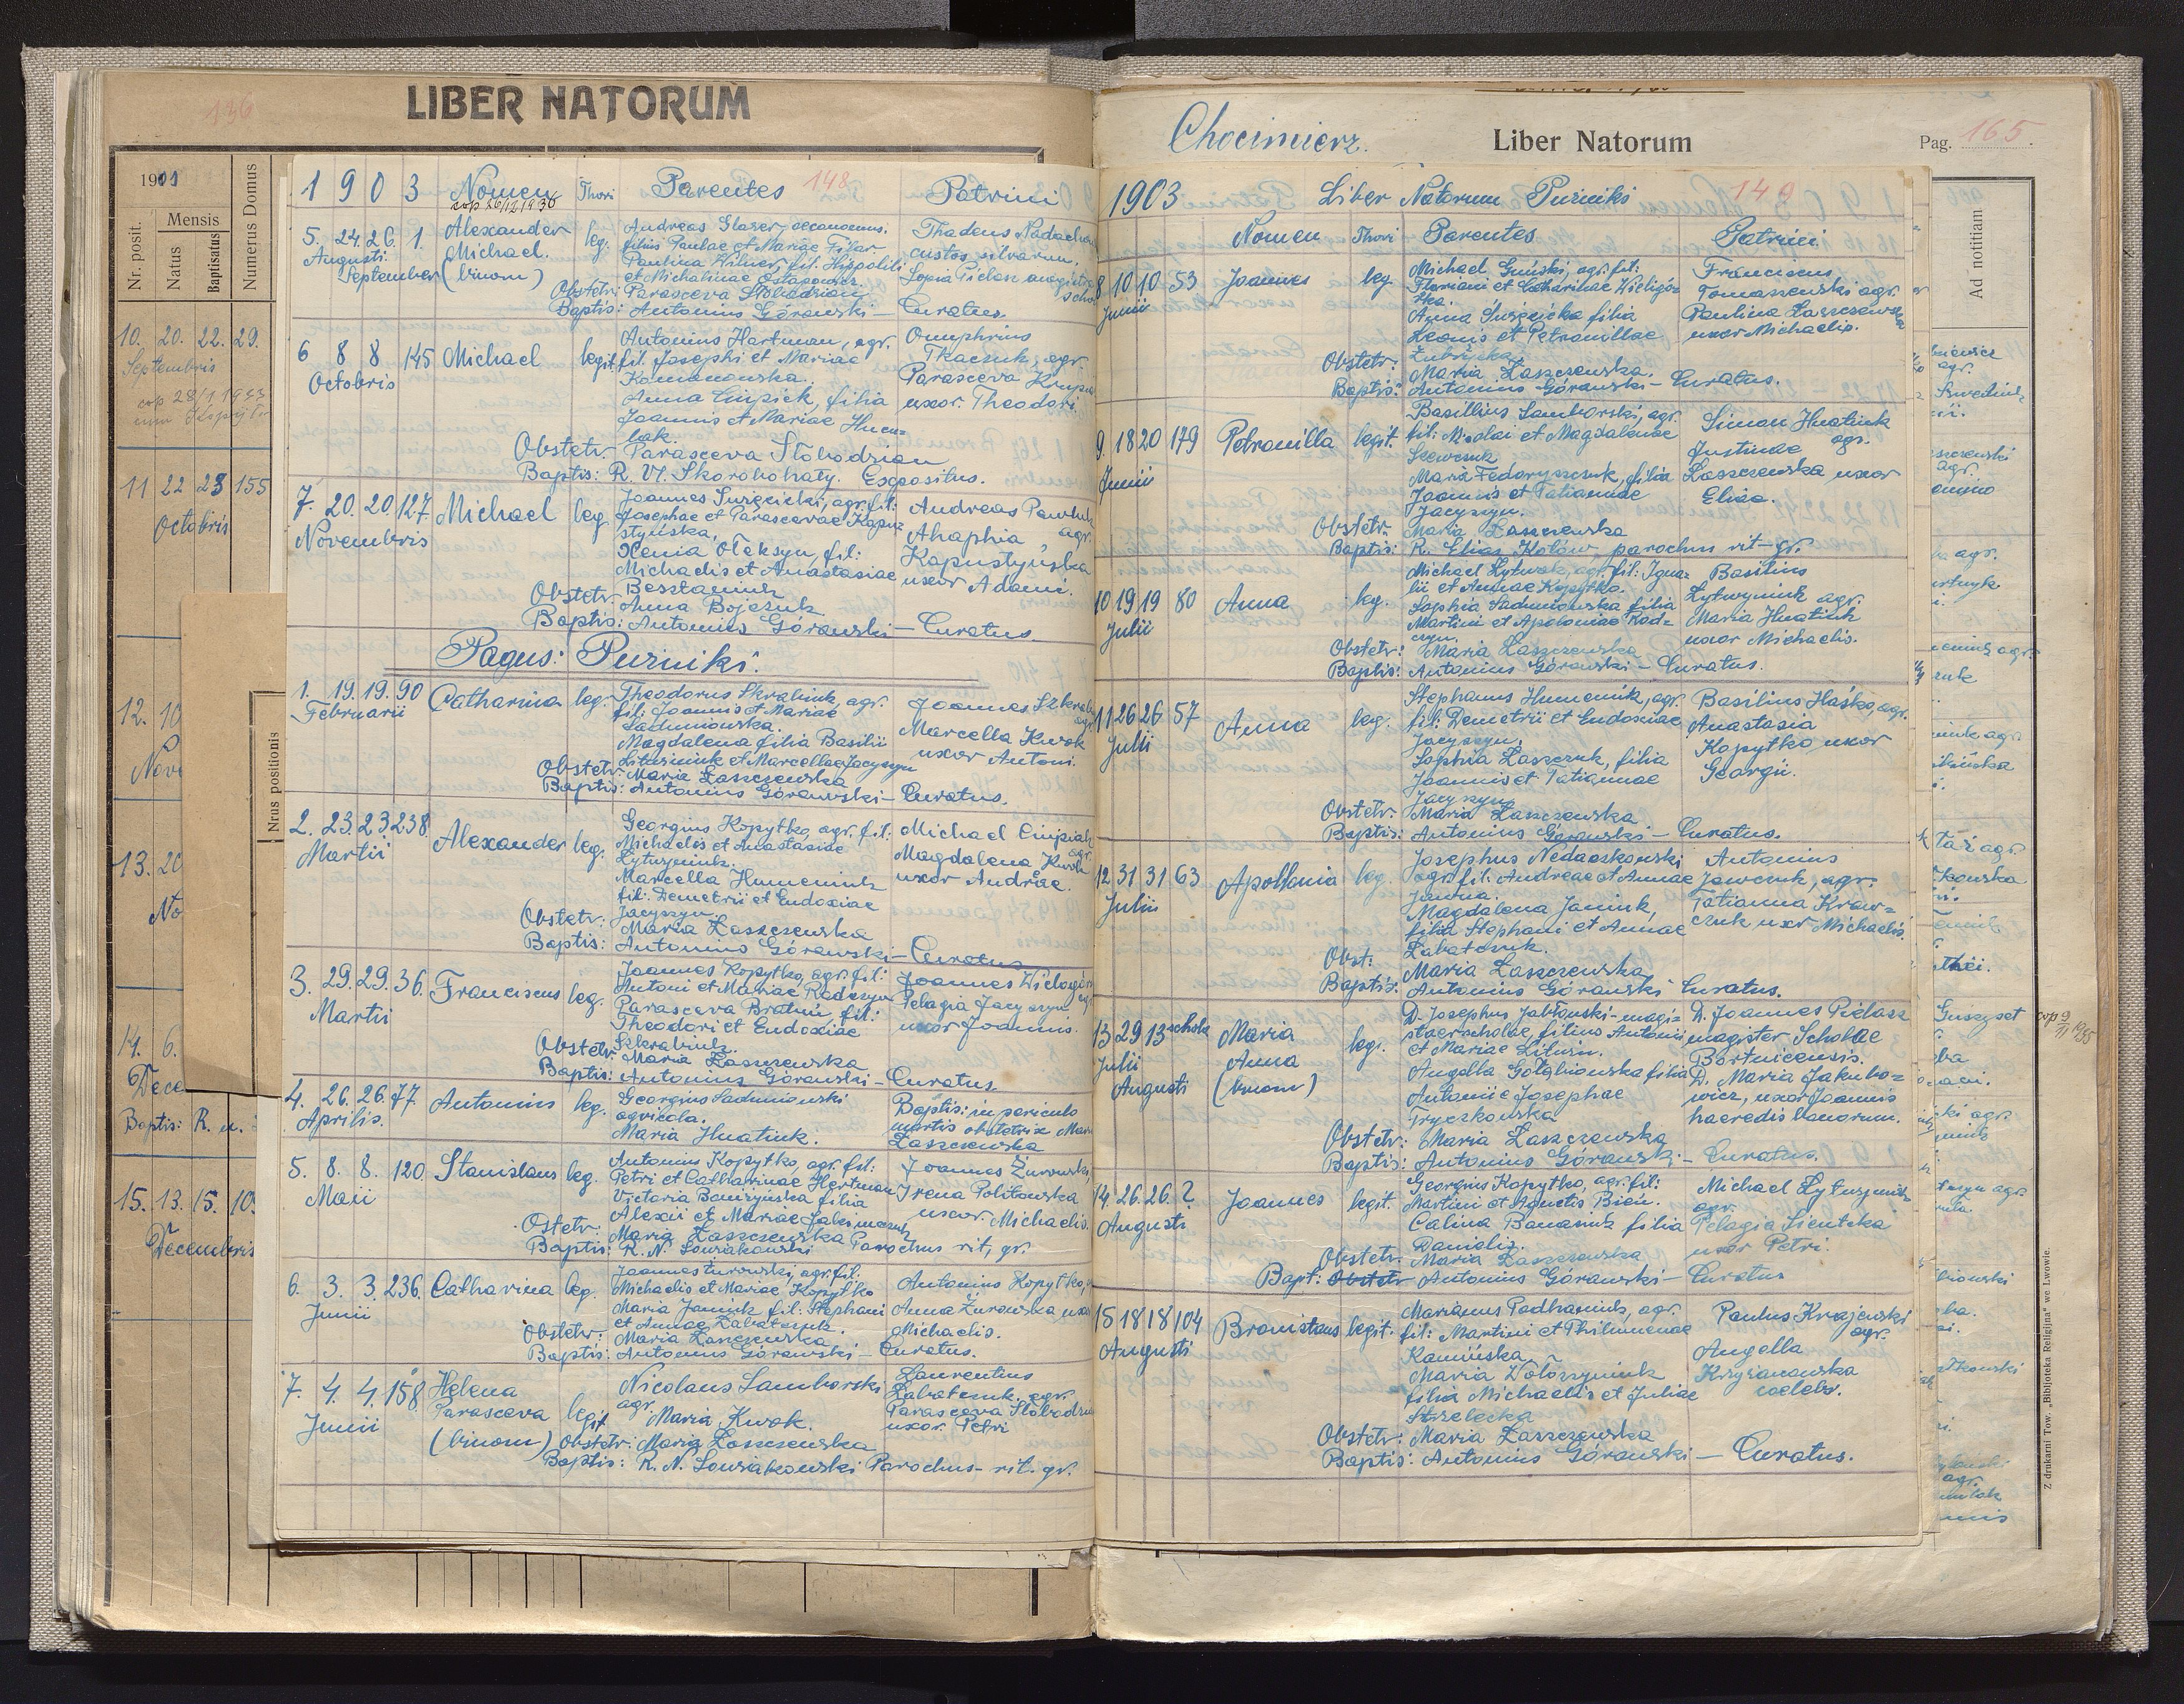 136
LIBER NATORUM
1901
Nr. posit.
Mensis
Natus
Baptisatus
Numerus Domus
10. 20. 22. 29.
Septembris
cop 28/1 1933
11 22 23 155
Octobris
12. 10
Nov
13. 20
No
14. 6.
Dece
Baptis: R.
15. 13. 15. 10
Decembris
Nrus positionis
1 9 0 3 Nomen Thori Parentes 148 Patrini
cop 26/12 1936
5. 24. 26. 1. Alexander leg. Andreas Glaser, oeconomus.
Augusti Michael.
September (binom)
filius Paulae et Mariae
Paulina Wilner, fil. Hippoliti
et Michalinae Ostapowicz.
Thadeus
custos silvarum.
Sophia Pielasz
Obstetr: Parasceva Słobodzian
Baptis: Antonius Górawski — Curatus.
6 8 8 145 Michael legit.
Octobris
Antonius Hartman, agr.
fil. Josephi et Mariae
Romanowska.
Anna Ciupick, filia
Joannis et Mariae Hucu=
lak.
Onuphrius
Tkaczuk, agr.
Parasceva
uxor. Theodori
Obstetr: Parasceva Słobodzian
Baptis: R. Vl. Skorobohaty. Expositus.
7. 20. 20. 127. Michael leg.
Novembris
Joannes Suręcicki, agr. fil:
Josephae et Parascevae Kapu=
styńska,
Xenia Oleksyn, fil:
Michaelis et Anastasiae
Besztaniuk
Andreas Pawluk
agr.
Ahaphia
Kapustyńska
uxor Adami.
Obstetr: Anna Bojczuk
Baptis: Antonius Górawski — Curatus.
Pagus: Puźniki.
1. 19. 19. 90 Catharina leg.
Februarii
Theodorus Skrabiuk, agr.
fil. Joannis et Mariae
Saduniowska.
Magdalena filia Basilii
Lituszniuk et Marcellae Jacyszyn
Joannes
Marcella Kwok
uxor Antoni.
Obstetr: Maria Łaszczewska
Baptis: Antonius Górawski — Curatus.
2. 23. 23. 238. Alexander leg.
Martii
Georgius Kopytko, agr. fil:
Michaelis et Anastasiae
Lytuszniuk.
Marcella Humeniuk
fil: Demetrii et Eudoxiae
Jacyszyn.
Michael
agr.
Magdalena Kwok
uxor Andriae.
Obstetr: Maria Łaszczewska
Baptis: Antonius Górawski — Curatus
3. 29. 29. 36. Franciscus leg.
Martii
Joannes Kopytko, agr. fil:
Antoni et Mariae Radczyn
Parasceva Bratuń, fil:
Theodori et Eudoxiae
Szkrabiuk.
Joannes
Pelagia Jacyszyn
uxor Joannis.
Obstetr: Maria Łaszczewska
Baptis: Antonius Górawski — Curatus.
4. 26. 26. 77. Antonius leg.
Aprilis.
Georgius Saduniowski
agricola.
Maria Hnatiuk.
Baptis: in periculo
mortis obstetrix Maria
Łaszczewska
5. 8. 8. 120. Stanislaus leg.
Maii
Antonius Kopytko, agr. fil:
Petri et Catharinae Hertman
Victoria Baniszyńska filia
Alexii et Mariae
Joannes Żurowski,
Irena Politowska
uxor. Michaelis.
Ostetr: Maria Łaszczewska
Baptis: R. N. Sowiakowski Parochus rit. gr.
6. 3. 3. 236. Catharina leg.
Junii
Joannes Żurowski, agr. fil:
Michaelis et Mariae Kopytko
Maria Janiuk fil: Stephani
et Annae Łabatczuk.
Antonius Kopytko,
Anna Żurowska uxor
Michaelis.
Obstetr: Maria Łaszczewska
Baptis: Antonius Górawski — Curatus.
7. 4. 4. 158 Helena
Junii Parasceva legit.
(binom)
Nicolaus Samborski
agr.
Maria Kwok.
Laurentius
Łabatczuk, agr.
Parasceva
uxor. Petri
Obstetr: Maria Łaszczewska
Baptis: R. N. Sowiakowski Parochus - rit. gr.
Chocimierz.
Liber Natorum
Pag. 165.
1903 Liber Natorum Puźniki 149
Nomen Thori Parentes Patrini
8 10 10 53 Joannes leg.
Junii
Michael Guński, agr. fil:
Floriani et Catharinae Wielgór=
ska.
Anna Suręcicka filia
Leonis et Petronillae
Zubrzycka
Franciscus
Tomaszewski agr.
Paulina Łaszczewska
uxor Michaelis.
Obstetr: Maria Łaszczewska.
Baptis: Antonius Górawski — Curatus.
9. 18 20 179 Petronilla legit.
Junii
Basilius Samborski, agr.
fil: Nicolai et Magdalenae
Szewczuk
Maria Fedoryszczuk, filia
Joannis et Tatiannae
Jacyszyn.
Simon Hnatiuk
agr.
Justina
Łaszczewska uxor
Eliae.
Obstetr: Maria Łaszczewska
Baptis: R. Elias Kotów parochus rit-gr.
10 19 19 80 Anna leg.
Julii
Michael Lytwak, agr. fil: Igna=
tii et Annae Kopytko.
Sophia Saduniowska filia
Martini et Apoloniae Rad=
czyn.
Basilius
Lytwyniuk agr.
Maria Hnatiuk
uxor Michaelis.
Obstetr: Maria Łaszczewska
Baptis: Antonius Górawski — Curatus.
11 26 26 57 Anna leg.
Julii
Stephanus Humeniuk, agr.
fil: Demetrii et Eudoxiae
Jacyszyn.
Sophia Łaszczuk, filia
Joannis et Tatiannae
Jacyszyn
Basilius Haśko, agr.
Anastasia
Kopytko uxor
Georgii.
Obstetr: Maria Łaszczewska
Baptis: Antonius Górawski — Curatus.
12 31 31 63 Apollonia leg.
Julii
Josephus Nedaszkowski
agr. fil: Andreae et Annae
Jawna.
Magdalena Janiuk,
filia Stephani et Annae
Łabatczuk.
Antonius
Jawczuk, agr.
Tatianna Kraw=
czuk uxor Michaelis.
Obst: Maria Łaszczewska
Baptis: Antonius Górawski Curatus.
13 29 13 schola Maria
Julii Anna leg.
Augusti (binom)
D. Josephus Jabłoński - magi=
ster scholae, filius Antonii
et Mariae Lituin.
Angella Gołębiowska filia
Antonii et Josephae
Tryczkowska
D. Joannes Pielasz
magister Scholae
Bortnicensis.
D. Maria Jakubo=
wicz, uxor Joannis
haeredis bonorum.
Obstetr: Maria Łaszczewska
Baptis: Antonius Górawski — Curatus.
14. 26. 26. ? Joannes legit.
Augusti
Georgius Kopytko, agr. fil:
Martini et Agnetis Bień.
Calina Banasiuk filia
Danielis.
Michael Lytuszniuk
agr.
Pelagia Sienicka
uxor Petri.
Obstetr: Maria Łaszczewska
Bapt: Obstetr Antonius Górawski — Curatus
15 18 18 104 Bronislaus legit.
Augusti
Marianus Podhaniuk, agr.
fil: Martini et Philumenae
Kamińska
Maria Wołoszyniuk
filia Michaelis et Juliae
Strzelecka
Paulus Krajewski
agr.
Angella
Krzyżanowska
coelebs.
Obstetr: Maria Łaszczewska
Baptis: Antonius Górawski — Curatus.
Ad notitiam
cop 9/II 1935
Z drukarni Tow. „Bibljoteka Religijna" we Lwowie.